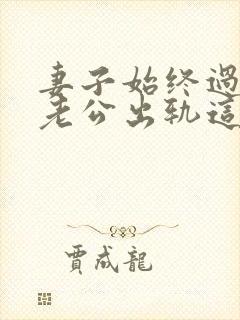 妻子始终過
老公出轨這
賈成龍